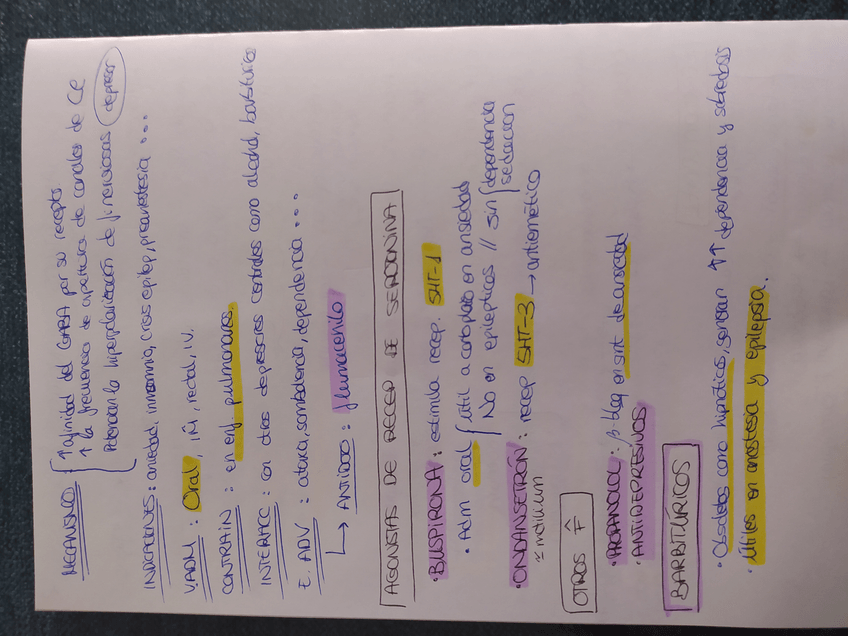 MECANISMO { ↑ afinidad del GABA por su receptor
↑ la frecuencia de apertura de canales de Cl⁻
Potencian la hiperpolarización de f. nerviosas (depresor)
INDICACIONES: ansiedad, insomnio, crisis epilep, preanestesia ...
V.ADM: Oral, IM, rectal, I.V.
CONTRAIN: en enf. pulmonares.
INTERACC: con otros depresores centrales como alcohol, barbitúricos
E. ADV: ataxia, somnolencia, dependencia ...
↳ ANTÍDOTO: flumacenilo
AGONISTAS DE RECEP DE SEROTONINA
· BUSPIRONA: estimula recep. 5HT-1
· Adm oral { útil a corto plazo en ansiedad
No en epilépticos // sin { dependencia
sedación
· ONDANSETRÓN: recep 5HT-3 → antiemético
≈ motilium
OTROS F̂
· PROPANOLOL: β-bloq en sínt de ansiedad
· ANTIDEPRESIVOS
BARBITÚRICOS
· Obsoletos como hipnóticos, generan ↑↑ dependencia y sobredosis
· Útiles en anestesia y epilepsia.